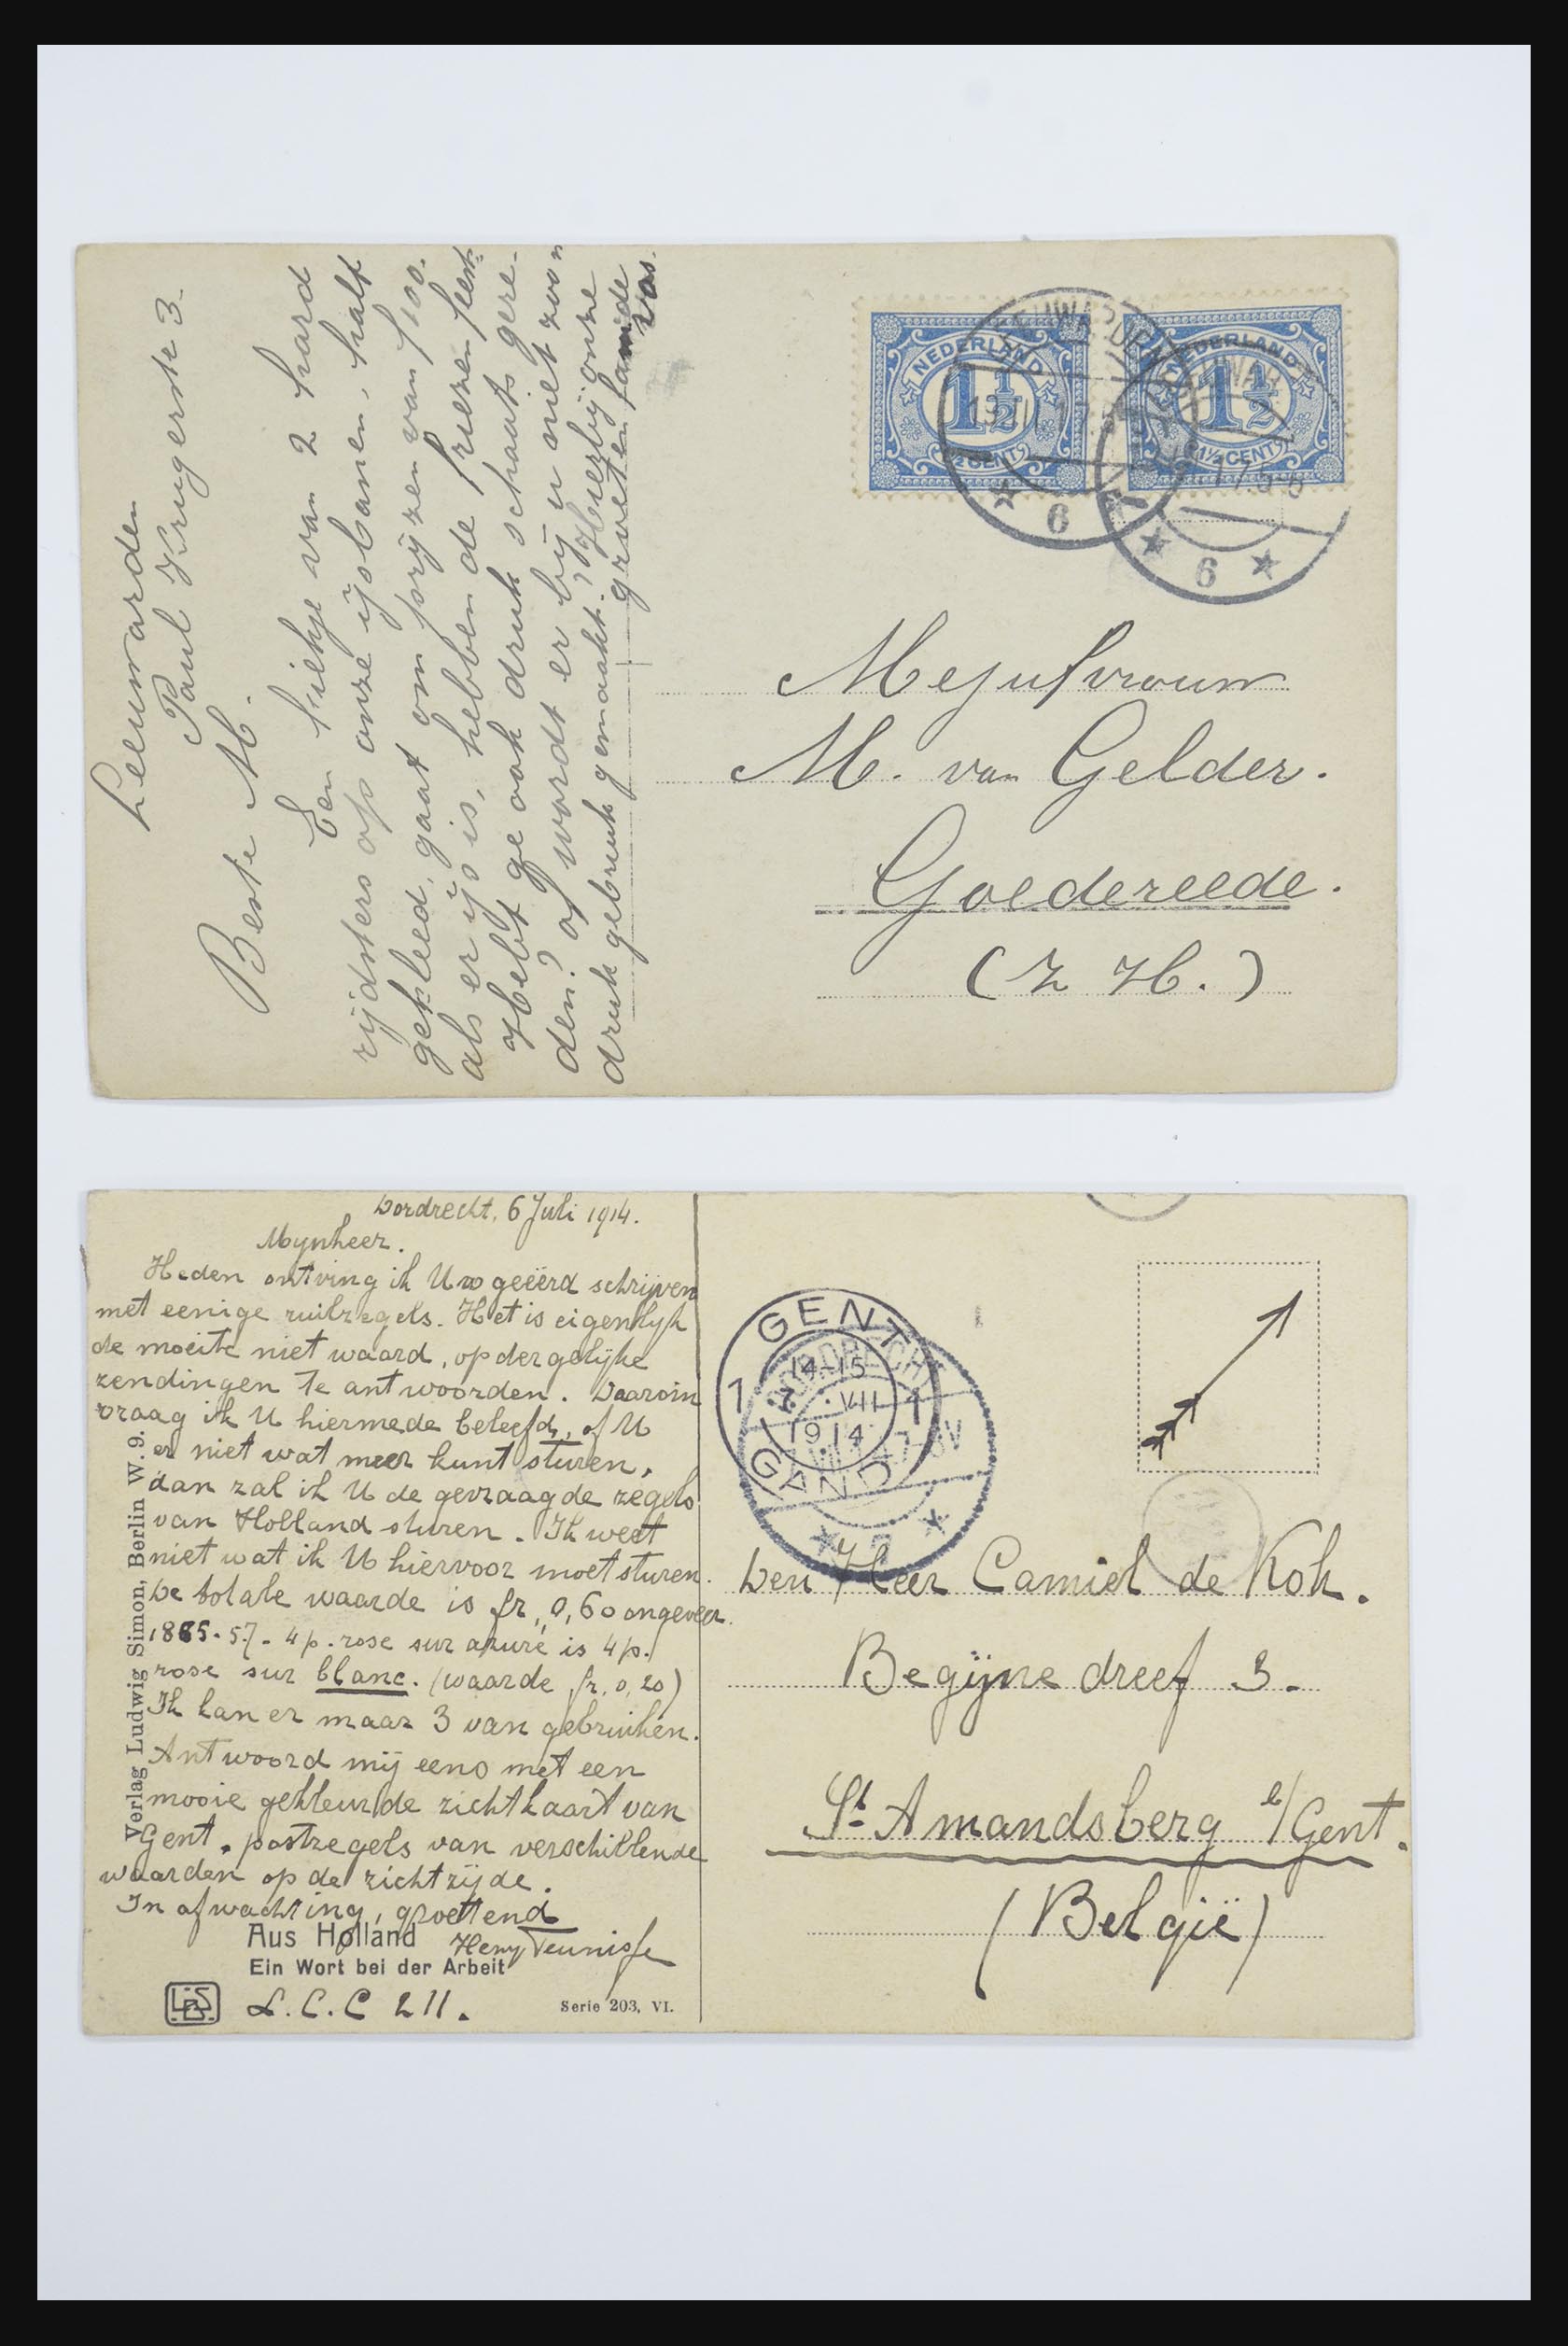 Leeuwarden
Paul Krugerstr 3.
Beste M.
Een kiekje van 2 hard
rijdsters op onze ijsbanen, half
gekleed, gaat om prijzen van f 100.
als er ijs is, hebben de friezen feest
Hebt ge ook druk schaats gere-
den? of wordt er bij u niet zoo'n
druk gebruik gemaakt? Hierbij onze
groeten familie
Vos.
NEDERLAND
1 1/2
1/2 CENT
NEDERLAND
1 1/2
1 1/2 CENT
LEEUWARDEN
6
6
Mejufvrouw
M. van Gelder.
Goedereede.
(Z H.)
Dordrecht, 6 Juli 1914.
Mynheer.
Heden ontving ik Uw geëerd schrijven
met eenige ruilzegels. Het is eigenlyk
de moeite niet waard, op dergelijke
zendingen te antwoorden. Daarom
vraag ik U hiermede beleefd, of U
er niet wat meer kunt sturen,
dan zal ik U de gevraagde zegels
van Holland sturen. Ik weet
niet wat ik U hiervoor moet sturen.
De totale waarde is fr. 0,60 ongeveer.
1865-57- 4p. rose sur azuré is 4p.
rose sur blanc. (waarde fr. 0,20)
Ik kan er maar 3 van gebruiken.
Antwoord mij eens met een
mooie gekleurde zichtkaart van
Gent, postzegels van verschillende
waarden op de zichtzijde.
In afwachting, groettend
Henry Teunisse
L.C.C 211.
Aus Holland
Ein Wort bei der Arbeit
Serie 203, VI.
Verlag Ludwig Simon, Berlin W. 9.
GENT
14-15
1 7. VII 1
1914
GAND
DORDRECHT
Den Heer Camiel de Kok.
Begijne dreef 3.
St. Amandsberg b/Gent.
(België)